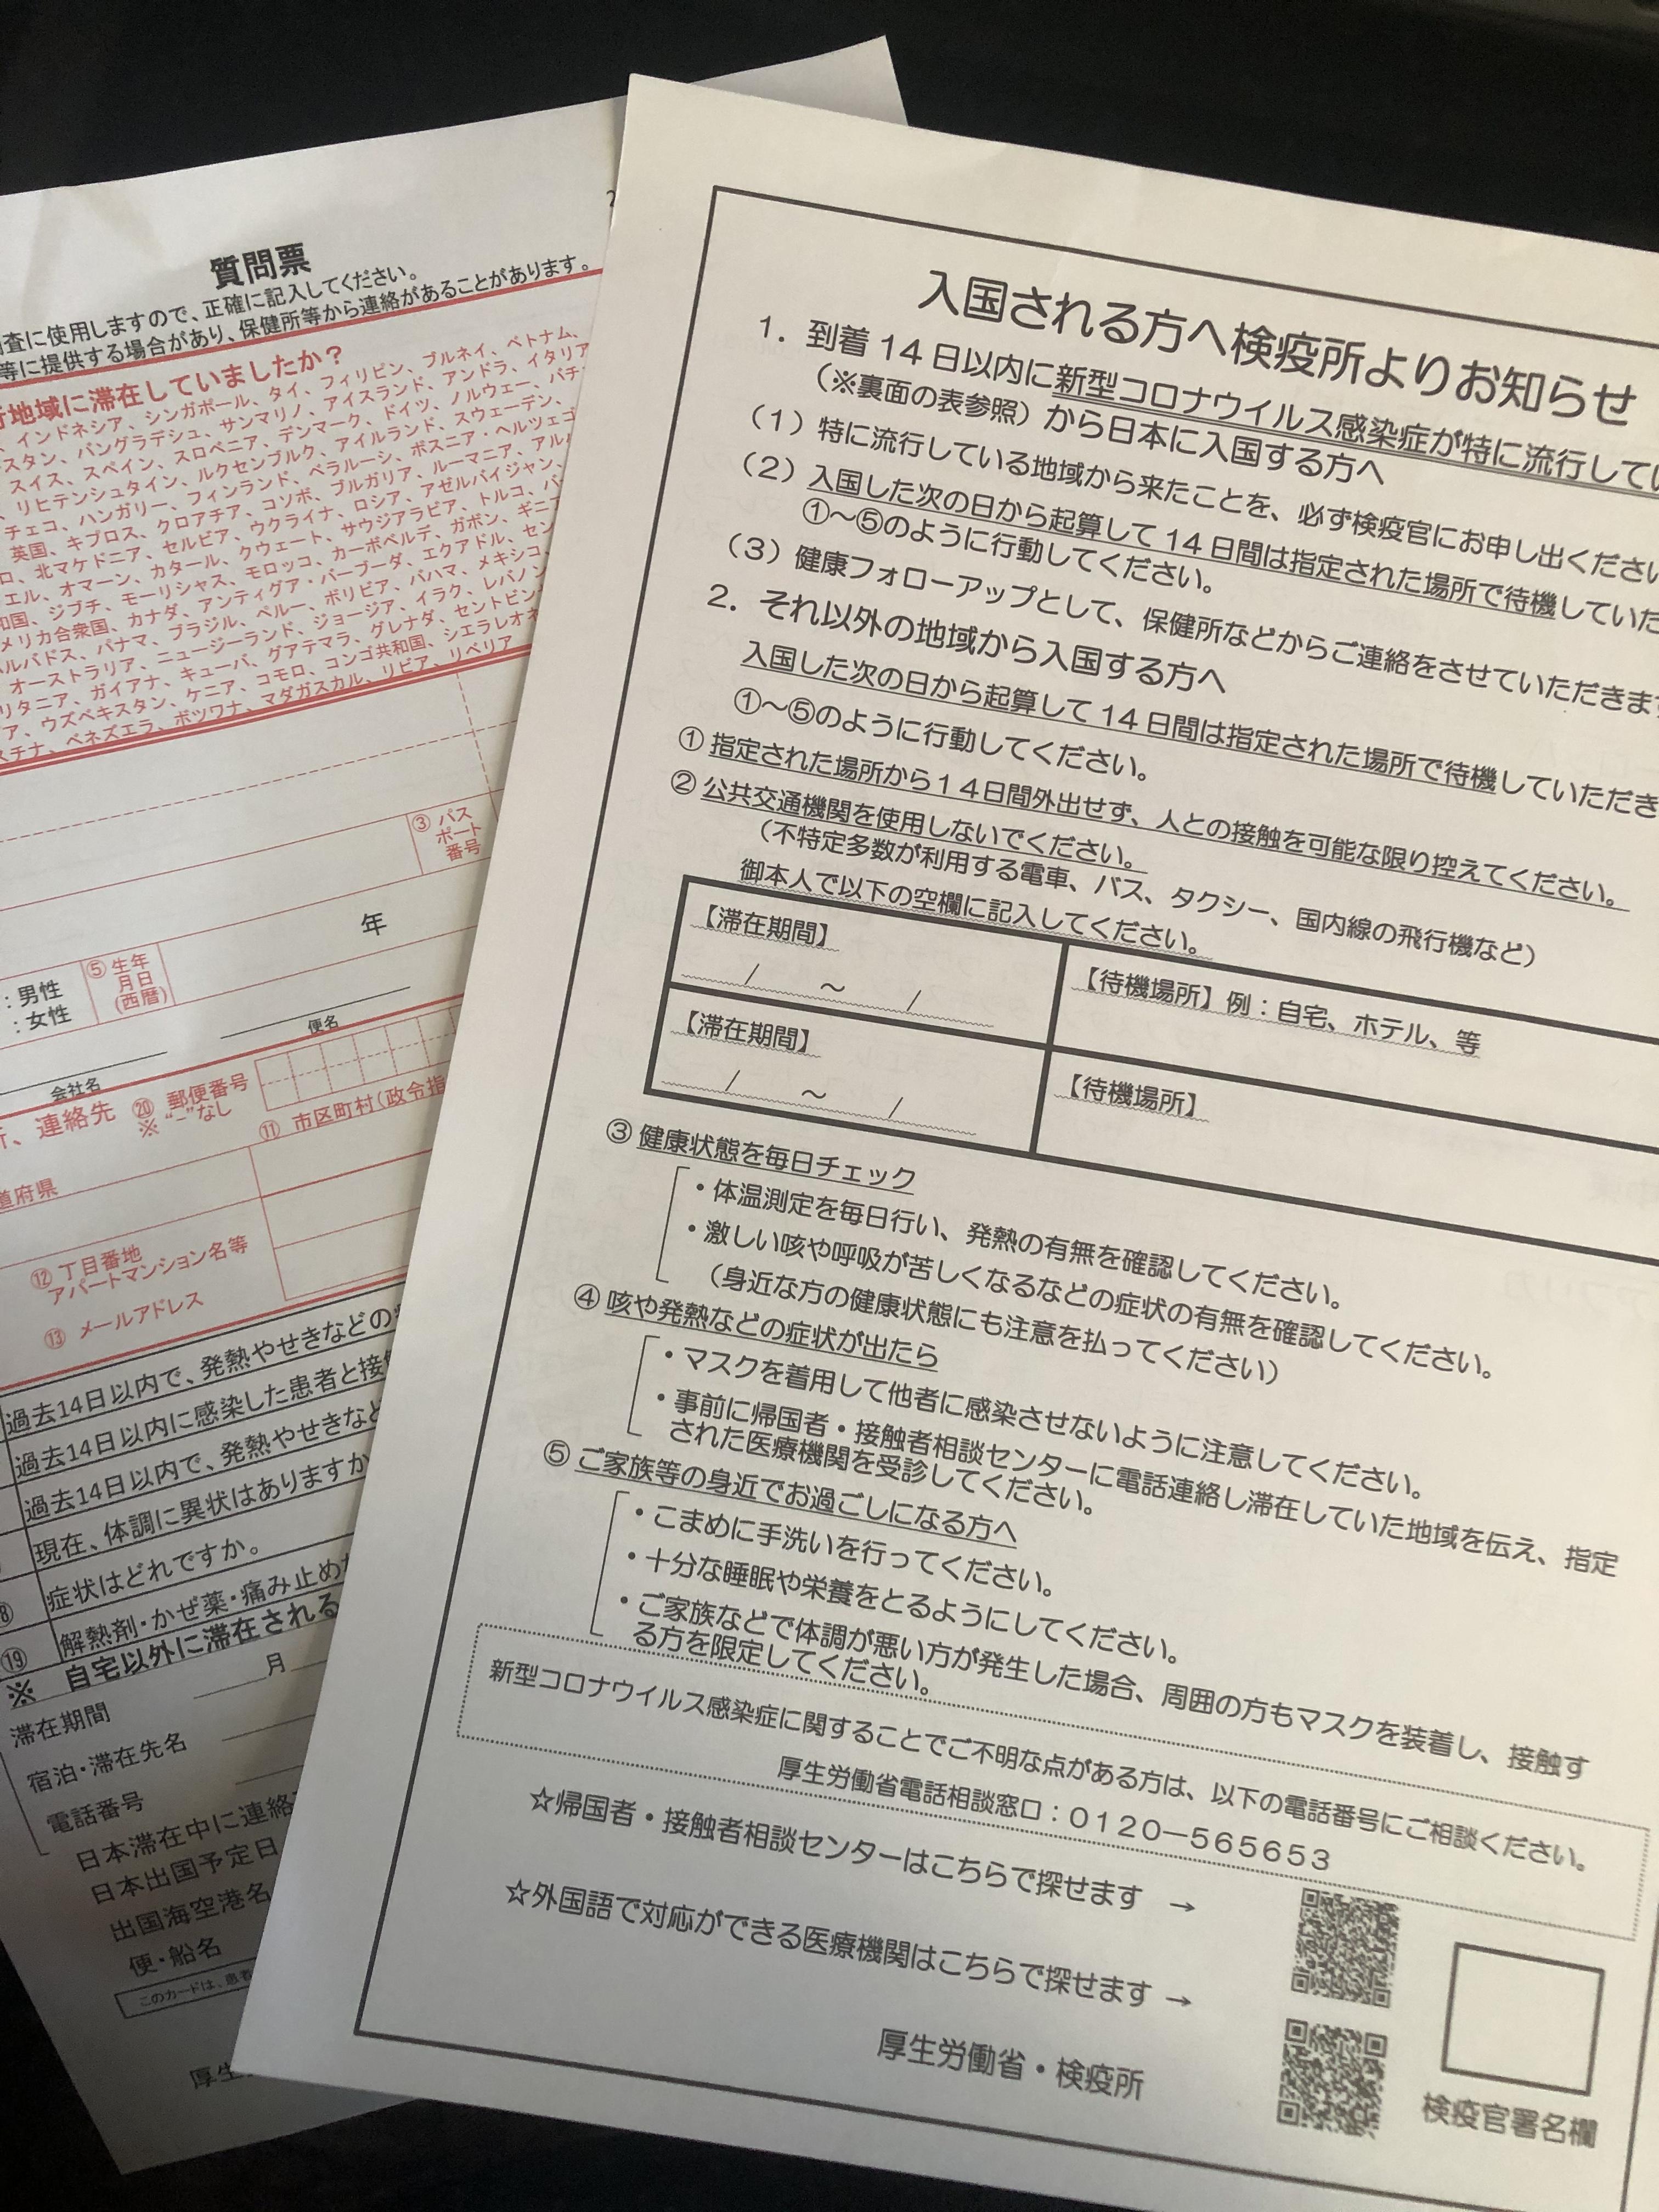 質問票
査に使用しますので、正確に記入してください。
等に提供する場合があり、保健所等から連絡があることがあります。
地域に滞在していましたか？
インドネシア、シンガポール、タイ、フィリピン、ブルネイ、ベトナム、
スタン、バングラデシュ、サンマリノ、アイスランド、アンドラ、イタリア
スイス、スペイン、スロベニア、デンマーク、ドイツ、ノルウェー、バチ
リヒテンシュタイン、ルクセンブルク、アイルランド、スウェーデン、
チェコ、ハンガリー、フィンランド、ベラルーシ、ボスニア・ヘルツェゴ
英国、キプロス、クロアチア、コソボ、ブルガリア、ルーマニア、アル
ロ、北マケドニア、セルビア、ウクライナ、ロシア、アゼルバイジャン、
エル、オマーン、カタール、クウェート、サウジアラビア、トルコ、バ
和国、ジブチ、モーリシャス、モロッコ、カーボベルデ、ガボン、ギニ
メリカ合衆国、カナダ、アンティグア・バーブーダ、エクアドル、セン
ルバドス、パナマ、ブラジル、ペルー、ボリビア、バハマ、メキシコ、
オーストラリア、ニュージーランド、ジョージア、イラク、レバノン
リタニア、ガイアナ、キューバ、グアテマラ、グレナダ、セントビン
ア、ウズベキスタン、ケニア、コモロ、コンゴ共和国、シエラレオネ
スチナ、ベネズエラ、ボツワナ、マダガスカル、リビア、リベリア
③ パスポート番号
年
：男性
：女性
⑤ 生年月日(西暦)
便名
会社名
、連絡先
⑳ 郵便番号
※ “－”なし
⑪ 市区町村(政令指
道府県
⑫ 丁目番地
アパートマンション名等
⑬ メールアドレス
過去14日以内で、発熱やせきなどの
過去14日以内に感染した患者と接
過去14日以内で、発熱やせきなど
現在、体調に異状はありますか
症状はどれですか。
⑲ 解熱剤・かぜ薬・痛み止め
※ 自宅以外に滞在される
滞在期間 月
宿泊・滞在先名
電話番号
日本滞在中に連絡
日本出国予定日
出国海空港名
便・船名
このカードは、患者
厚生
入国される方へ検疫所よりお知らせ
1．到着14日以内に新型コロナウイルス感染症が特に流行してい
（※裏面の表参照）から日本に入国する方へ
（1）特に流行している地域から来たことを、必ず検疫官にお申し出ください
（2）入国した次の日から起算して14日間は指定された場所で待機していた
①～⑤のように行動してください。
（3）健康フォローアップとして、保健所などからご連絡をさせていただきます
2．それ以外の地域から入国する方へ
入国した次の日から起算して14日間は指定された場所で待機していただき
①～⑤のように行動してください。
① 指定された場所から１４日間外出せず、人との接触を可能な限り控えてください。
② 公共交通機関を使用しないでください。
（不特定多数が利用する電車、バス、タクシー、国内線の飛行機など）
御本人で以下の空欄に記入してください。
【滞在期間】
／ ～ ／
【待機場所】例：自宅、ホテル、等
【滞在期間】
／ ～ ／
【待機場所】
③ 健康状態を毎日チェック
・体温測定を毎日行い、発熱の有無を確認してください。
・激しい咳や呼吸が苦しくなるなどの症状の有無を確認してください。
（身近な方の健康状態にも注意を払ってください）
④ 咳や発熱などの症状が出たら
・マスクを着用して他者に感染させないように注意してください。
・事前に帰国者・接触者相談センターに電話連絡し滞在していた地域を伝え、指定
された医療機関を受診してください。
⑤ ご家族等の身近でお過ごしになる方へ
・こまめに手洗いを行ってください。
・十分な睡眠や栄養をとるようにしてください。
・ご家族などで体調が悪い方が発生した場合、周囲の方もマスクを装着し、接触す
る方を限定してください。
新型コロナウイルス感染症に関することでご不明な点がある方は、以下の電話番号にご相談ください。
厚生労働省電話相談窓口：０１２０－５６５６５３
☆帰国者・接触者相談センターはこちらで探せます →
☆外国語で対応ができる医療機関はこちらで探せます →
厚生労働省・検疫所
検疫官署名欄